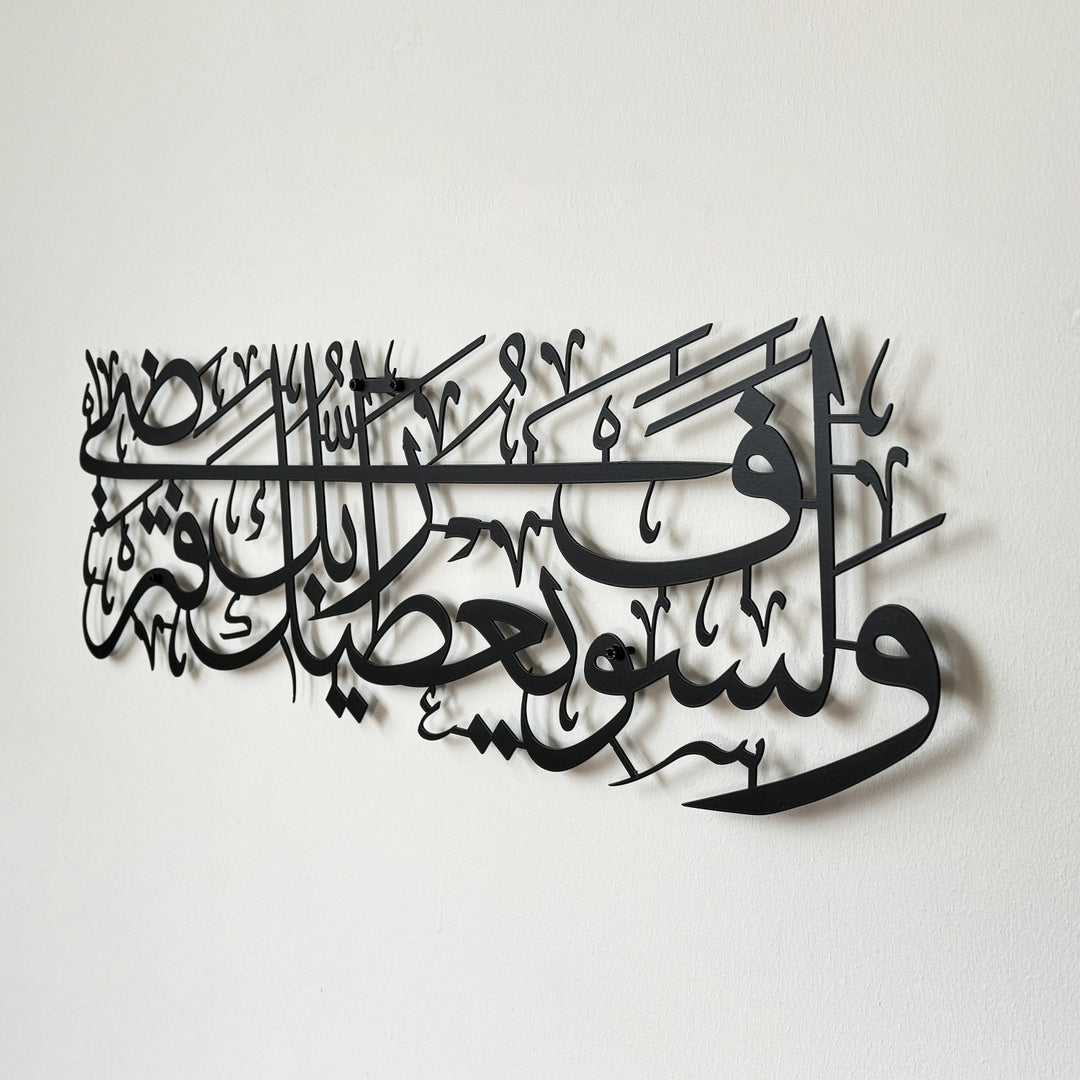 وَلَسَوْفَ يُعْطِيكَ رَبُّكَ فَتَرْضَى